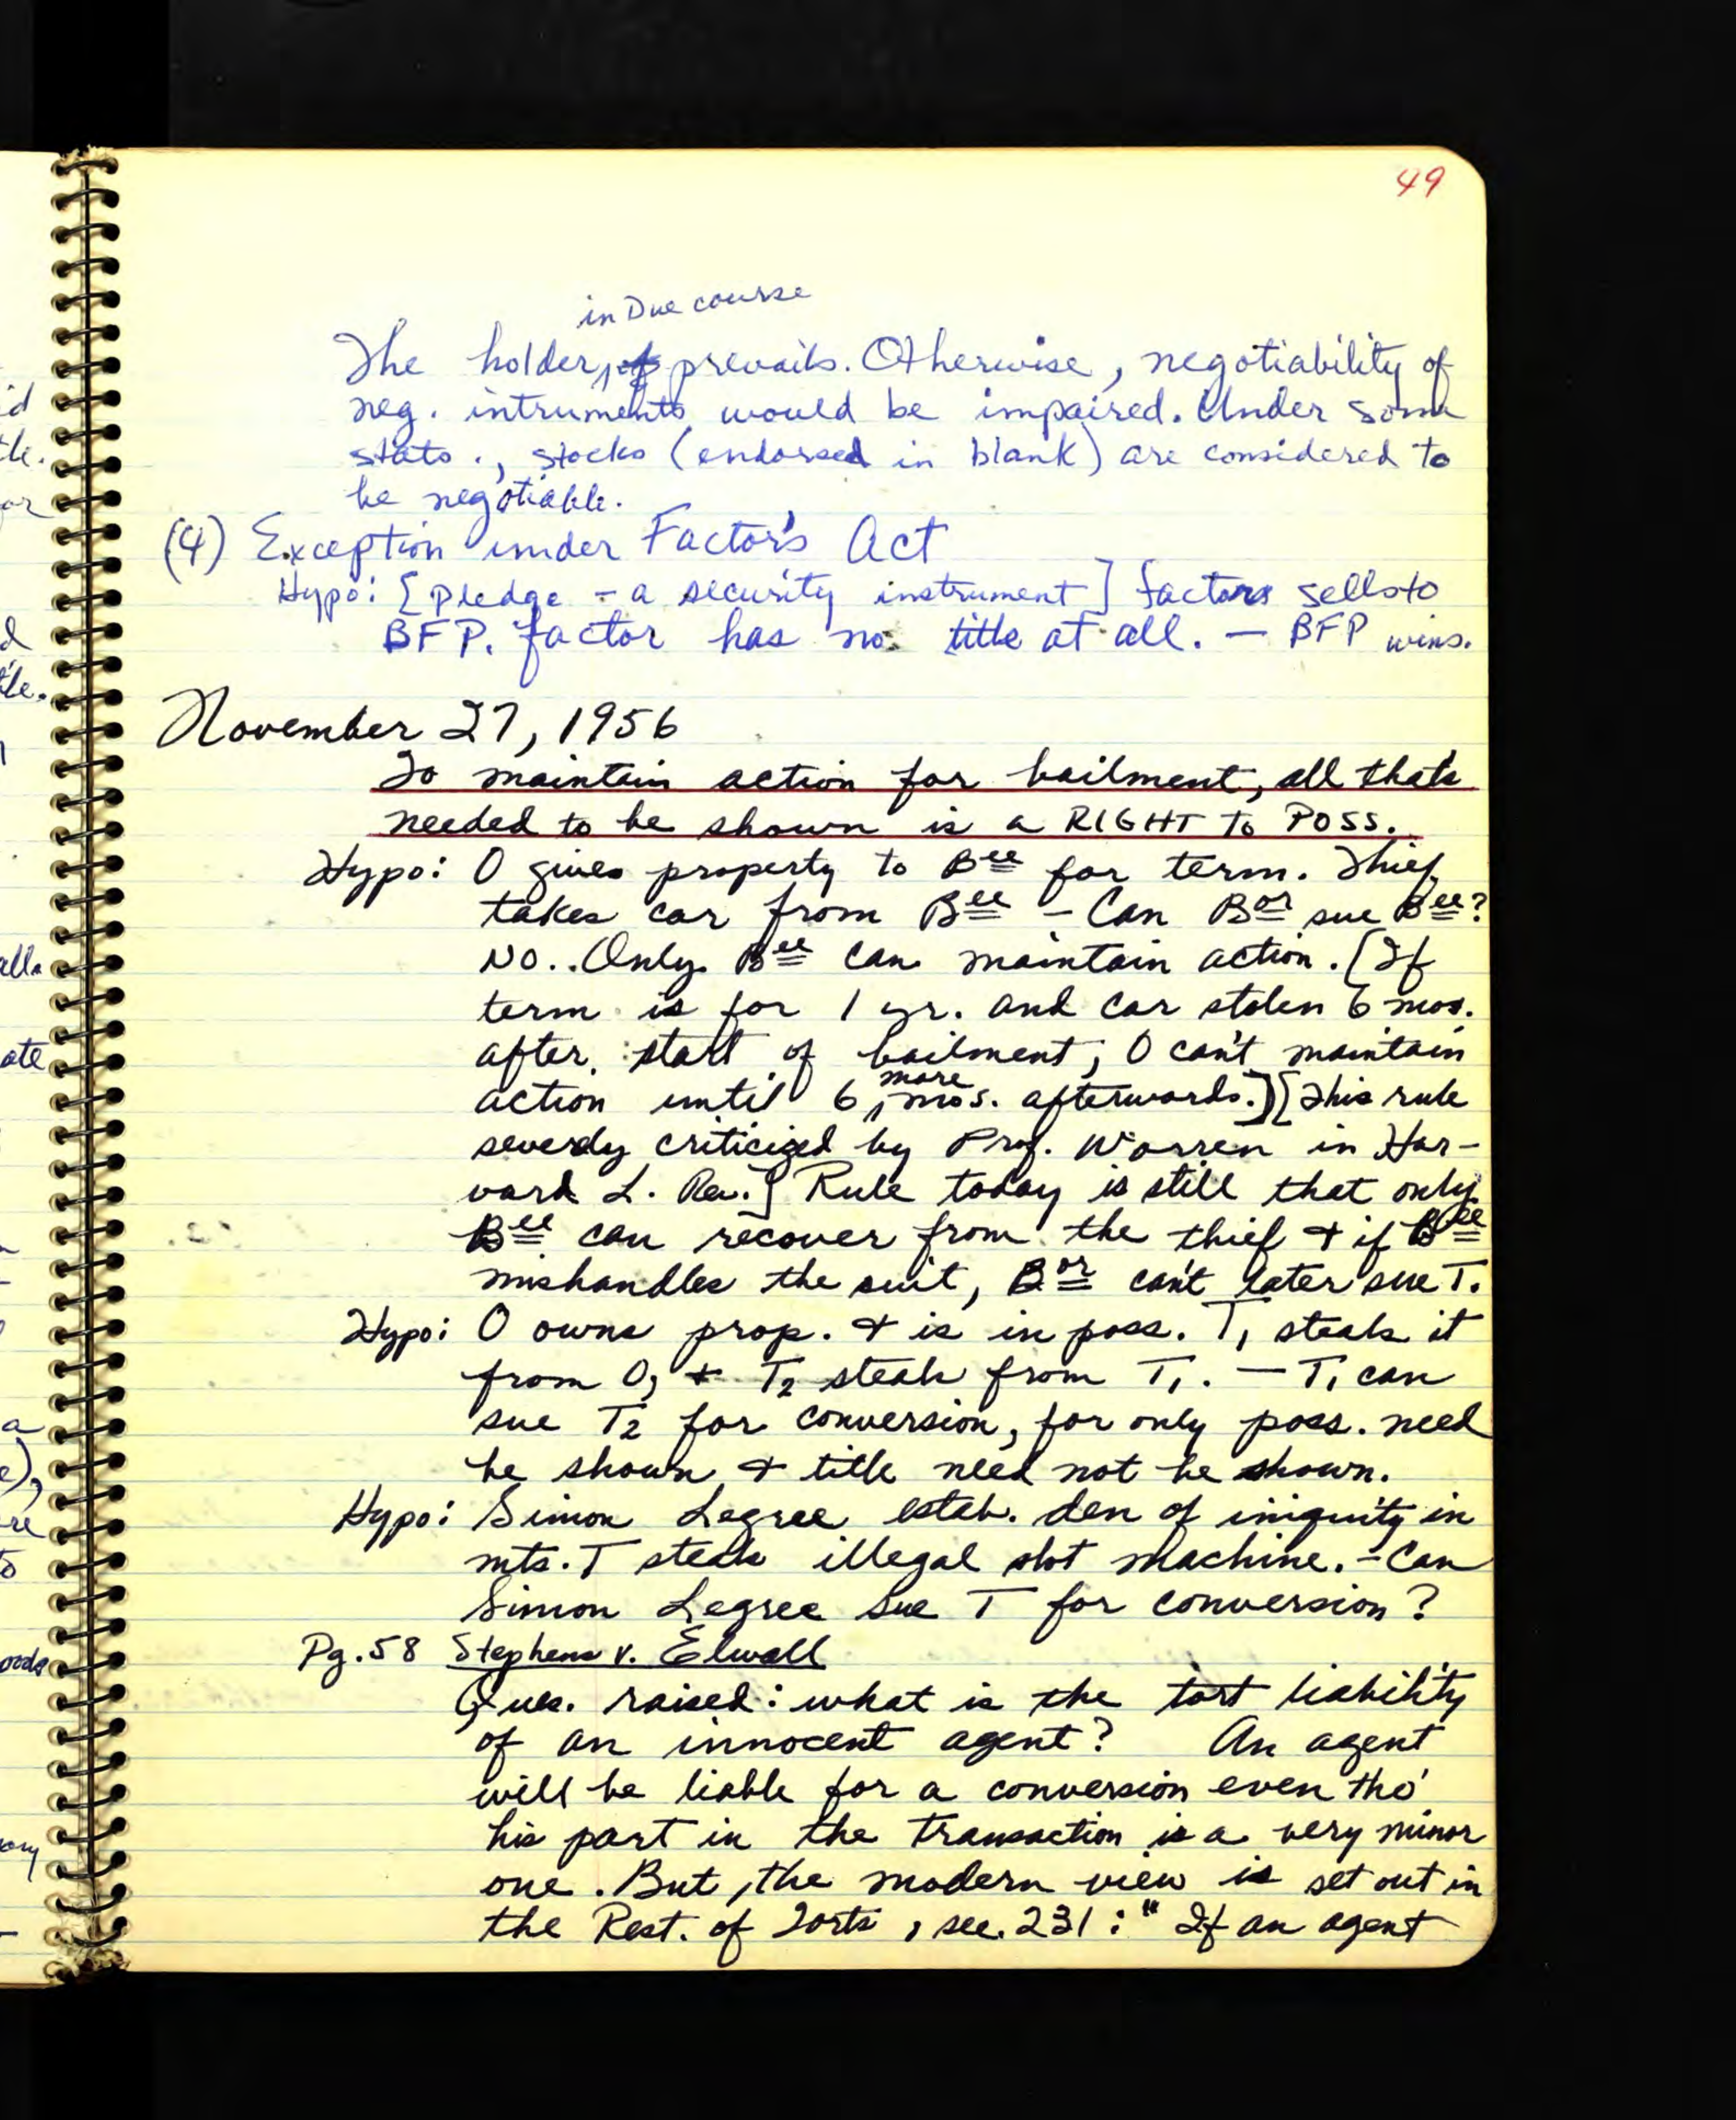 49
in Due course
The holder, prevails. Otherwise, negotiability of
neg. intruments would be impaired. Under some
stats., stocks (endorsed in blank) are considered to
be negotiable.
(4) Exception under Factor's Act
Hypo: [Pledge - a security instrument] factors sells to
BFP. factor has no title at all. — BFP wins.
November 27, 1956
To maintain action for bailment, all that's
needed to be shown is a RIGHT TO POSS.
Hypo: O gives property to Bee for term. Thief
takes car from Bee - Can Bor sue Bee?
NO.. Only Bee can maintain action. [If
term is for 1 yr. and car stolen 6 mos.
after start of bailment, O can't maintain
action until 6 more mos. afterwards.] [This rule
severely criticized by Prof. Warren in Har-
vard L. Rev.] Rule today is still that only
Bee can recover from the thief + if Bee
mishandles the suit, Bor can't later sue T.
Hypo: O owns prop. + is in poss. T1 steals it
from O, + T2 steals from T1. — T1 can
sue T2 for conversion, for only poss. need
be shown + title need not be shown.
Hypo: Simon Legree estab. den of iniquity in
mts. T steals illegal slot machine. - Can
Simon Legree sue T for conversion?
Pg. 58 Stephens v. Elwall
Ques. raised: what is the tort liability
of an innocent agent? An agent
will be liable for a conversion even tho'
his part in the transaction is a very minor
one. But, the modern view is set out in
the Rest. of Torts, sec. 231: "If an agent